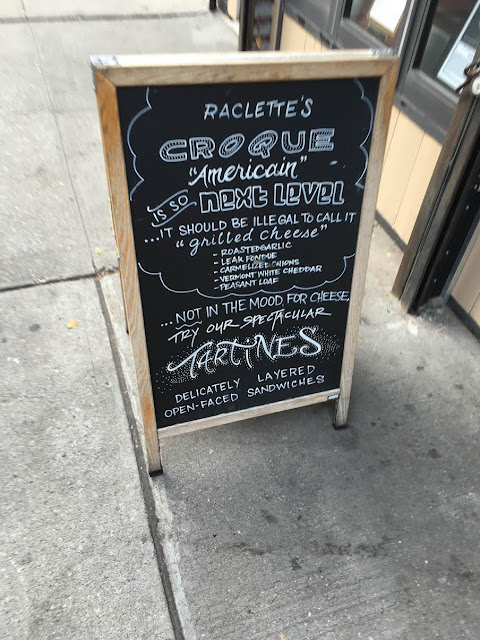 RACLETTE'S
CROQUE
"Americain"
IS SO NEXT LEVEL
...IT SHOULD BE ILLEGAL TO CALL IT
"grilled cheese"
- ROASTED GARLIC
- LEAK FONDUE
- CARMELIZED ONIONS
- VERMONT WHITE CHEDDAR
- PEASANT LOAF
...NOT IN THE MOOD FOR CHEESE,
TRY OUR SPECTACULAR
TARTINES
DELICATELY LAYERED
OPEN-FACED SANDWICHES